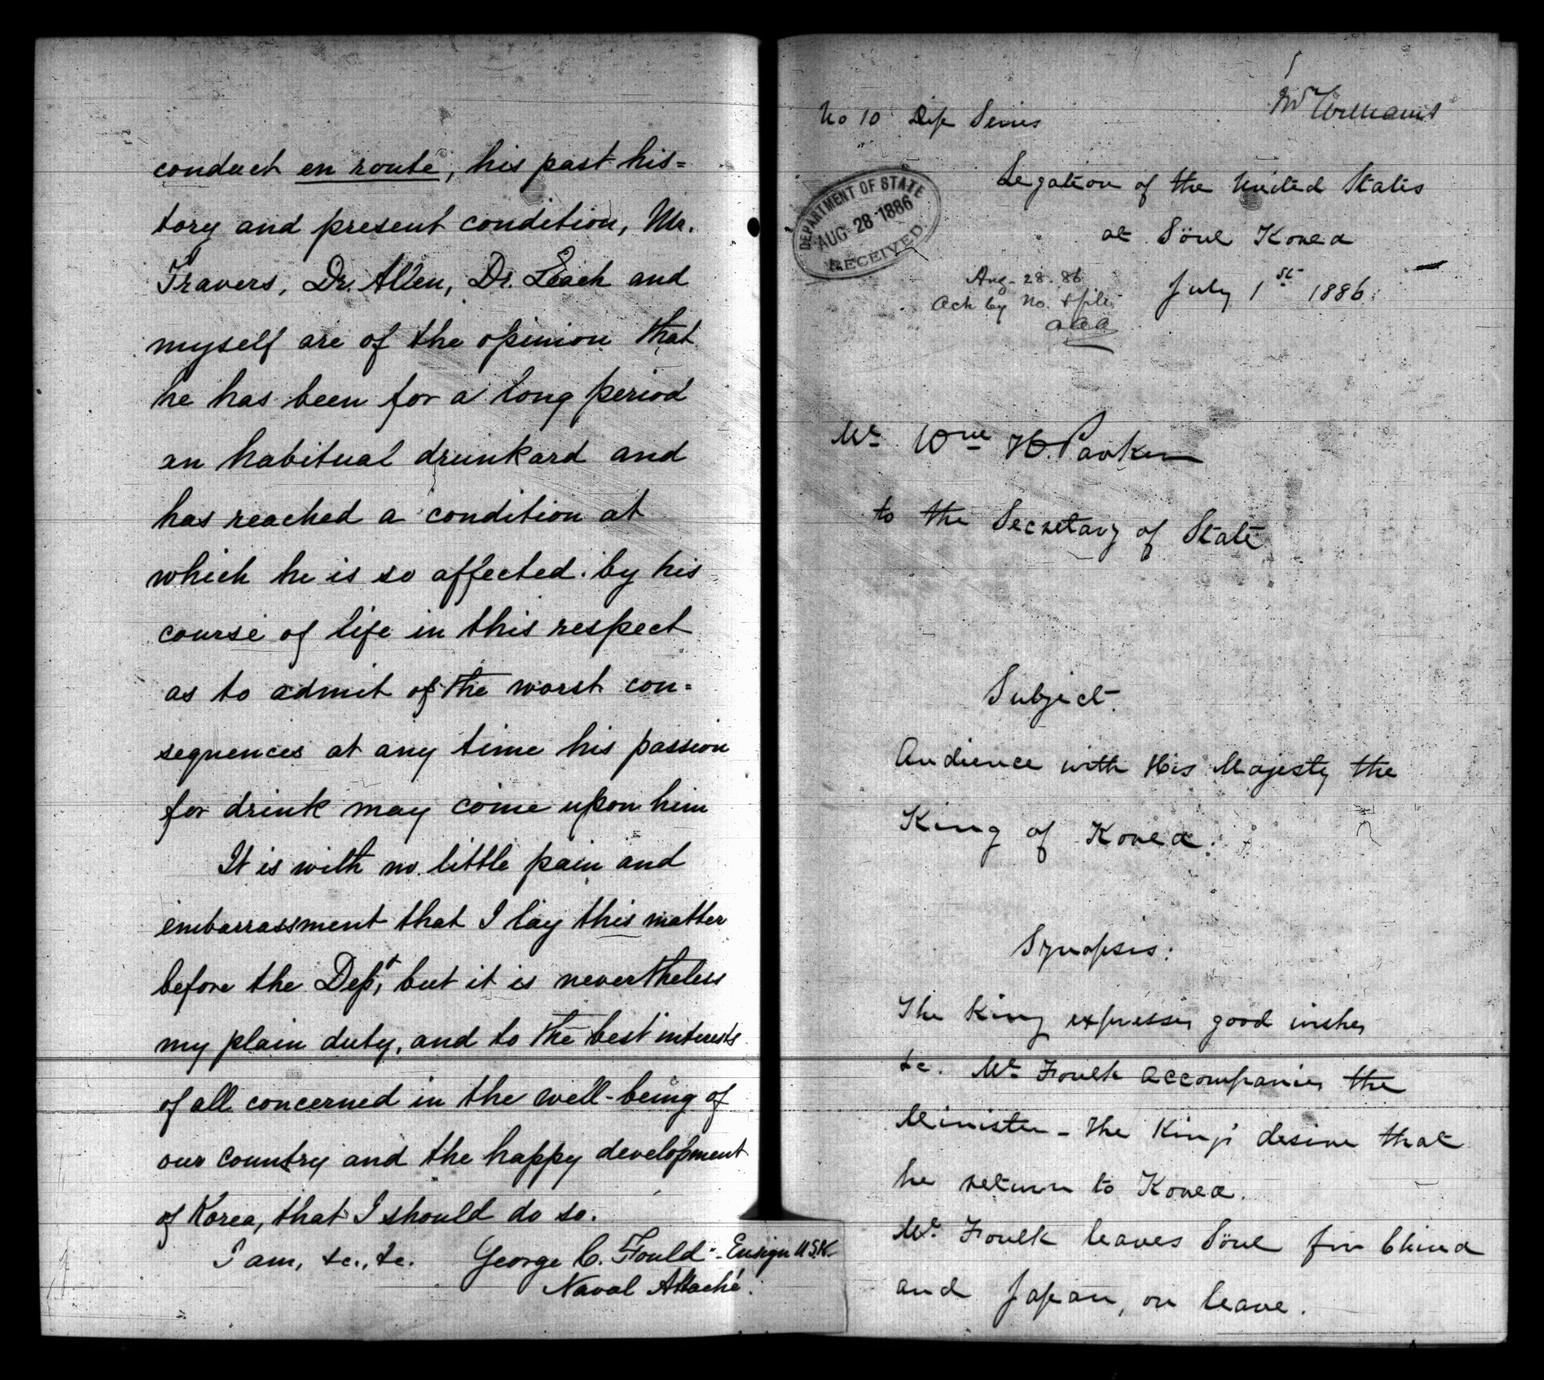 conduct en route, his past his=
tory and present condition, Mr.
Travers, Dr. Allen, Dr. Leach and
myself are of the opinion that
he has been for a long period
an habitual drunkard and
has reached a condition at
which he is so affected by his
course of life in this respect
as to admit of the worst con=
sequences at any time his passion
for drink may come upon him
It is with no little pain and
embarrassment that I lay this matter
before the Dept, but it is nevertheless
my plain duty, and to the best interests
of all concerned in the well-being of
our country and the happy development
of Korea, that I should do so.
I am, &c., &c. George C. Fould - Ensign U.S.N.
Naval Attaché.
Mr Williams
No 10 Dip Series
Legation of the United States
at Söul Korea
July 1st 1886.
DEPARTMENT OF STATE
AUG 28 1886
RECEIVED
Aug. 28. 86
Ack by No. & file
aaa
Mr Wm H. Parker
to the Secretary of State
Subject.
Audience with His Majesty the
King of Korea.
Synopsis:
The King expresses good wishes
&c. Mr Foulk accompanies the
Minister - The King's desire that
he return to Korea.
Mr. Foulk leaves Söul for China
and Japan, on leave.